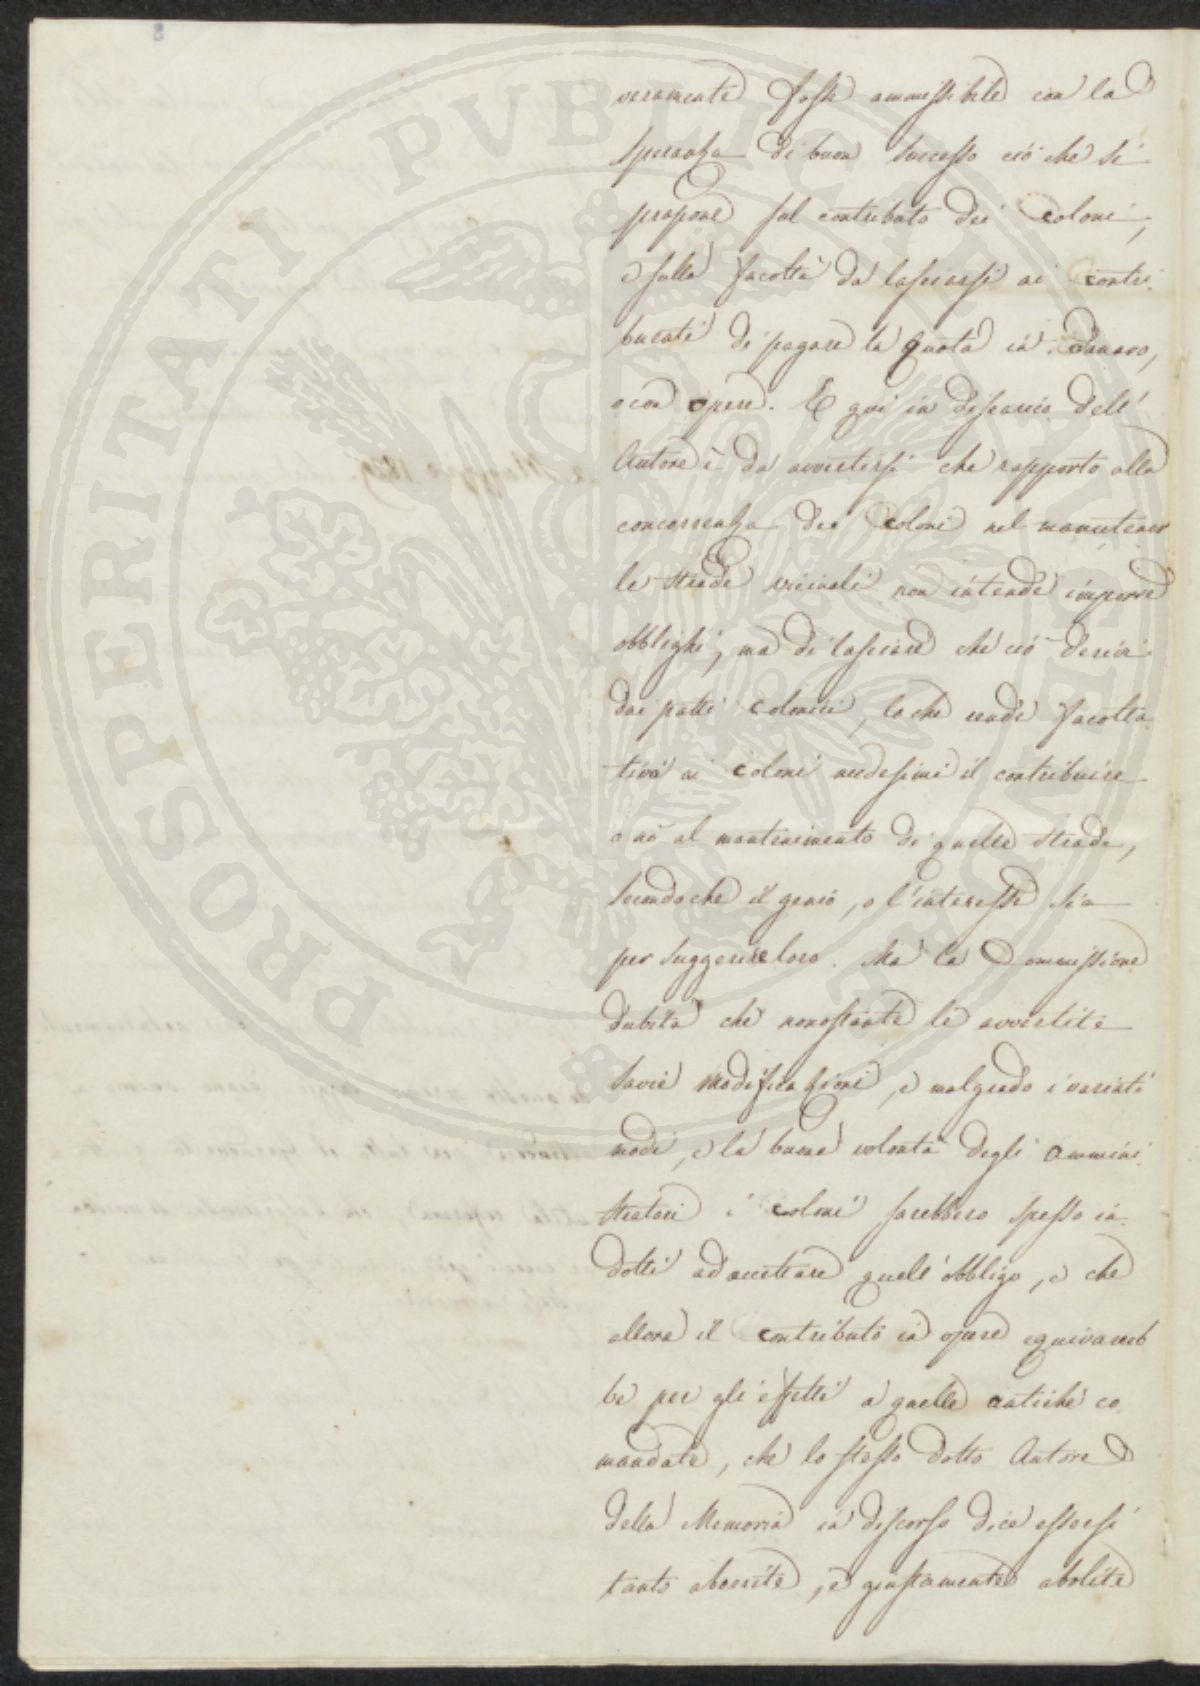 veramente fosse ammissibile con la
speranza di buon successo ciò che si
propone sul contributo dei Coloni,
e sulla facoltà da lasciarsi ai contri-
buenti di pagare la quota in danaro,
o con opere. E qui in discarico dell'
Autore è da avvertirsi che rapporto alla
concorrenza dei Coloni nel mantener
le strade vicinali non intende imporre
obblighi, ma di lasciare che ciò derivi
dai patti colonici, lo che rende facolta-
tivo ai Coloni medesimi il contribuire
o nò al mantenimento di quelle strade,
secondochè il genio, o l'interesse sia
per suggerire loro. Ma la Commissione
dubita che nonostante le avvertite
savie modificazioni, e malgrado i variati
modi, e la buona volontà degli Ammini-
stratori i coloni sarebbero spesso in-
dotti ad accettare quell'obbligo, e che
allora il contributo in opere equivarreb
be per gli effetti a quelle antiche co-
mandate, che lo stesso dotto Autore
della Memoria in discorso dice essersi
tanto aborrite, e giustamente abolite
PROSPERITATI PVBLICAE AVGENDAE